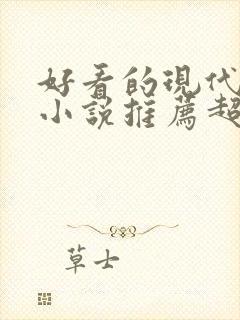 好看的现代
小说推薦超
草士